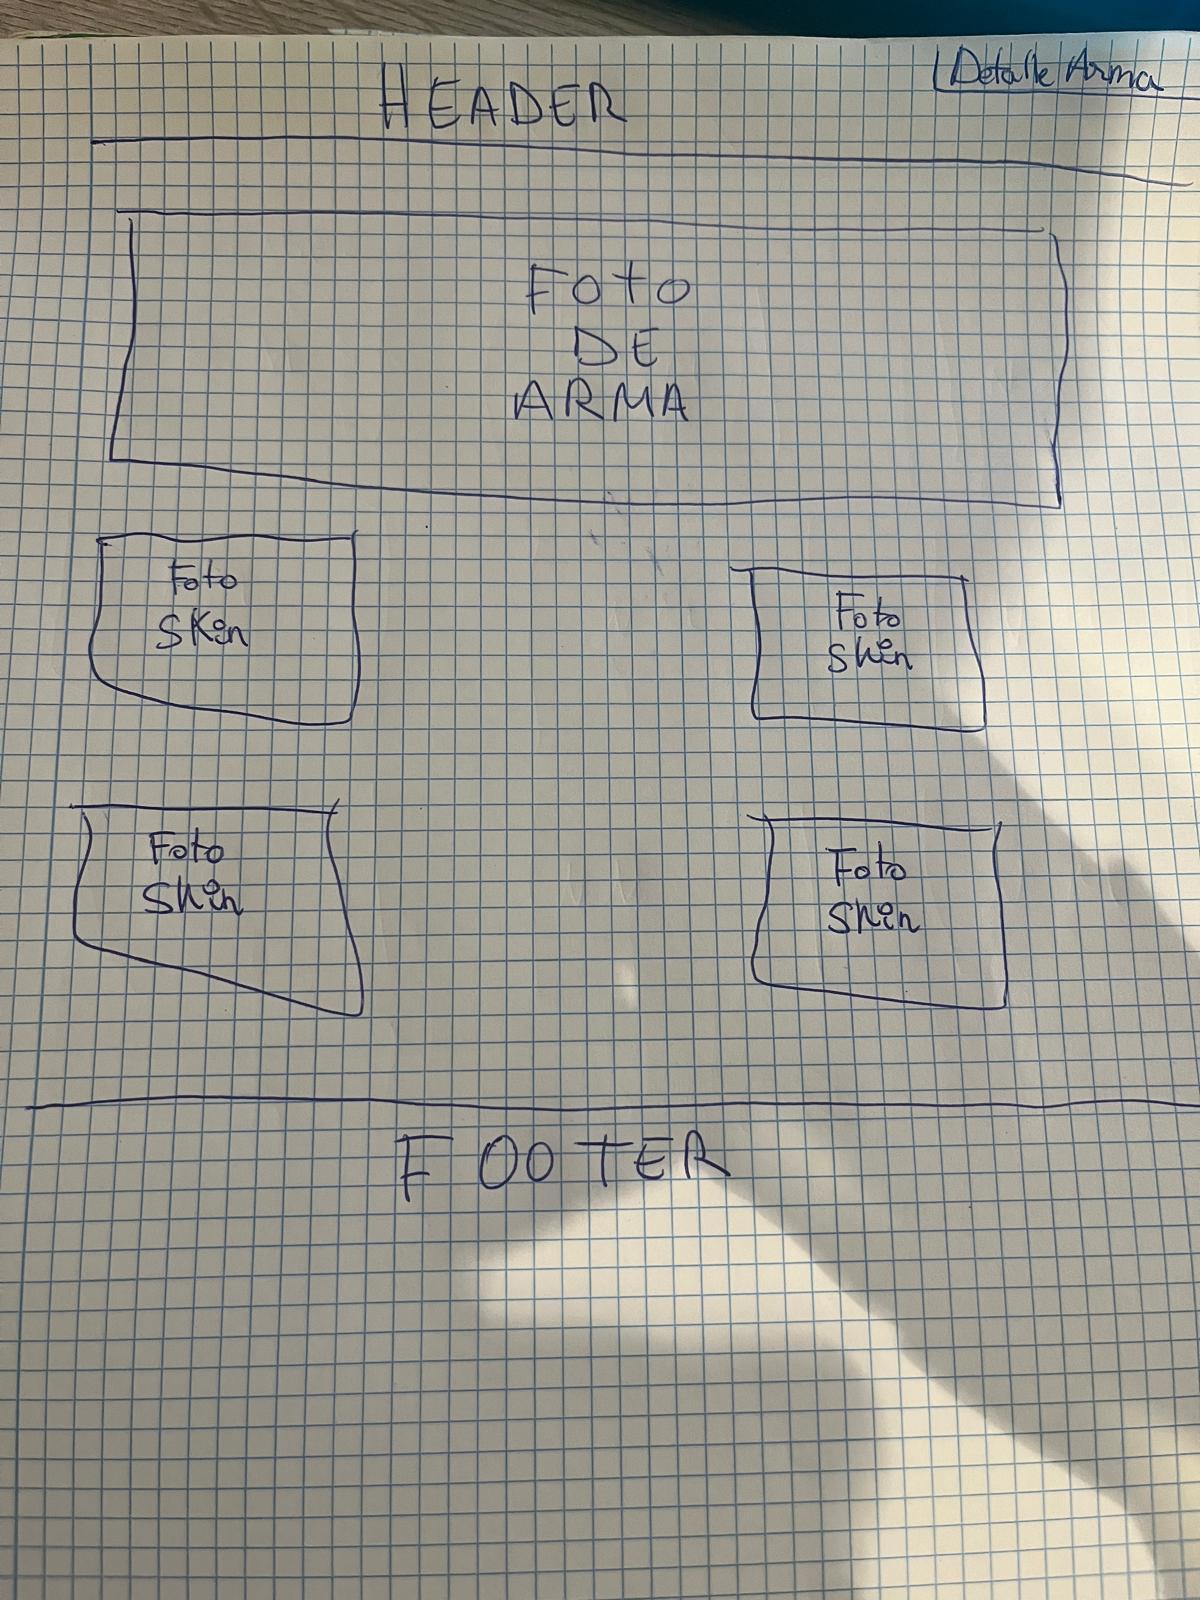 Detalle Arma
HEADER
Foto
DE
ARMA
Foto
Skin
Foto
Skin
Foto
Skin
Foto
Skin
FOOTER